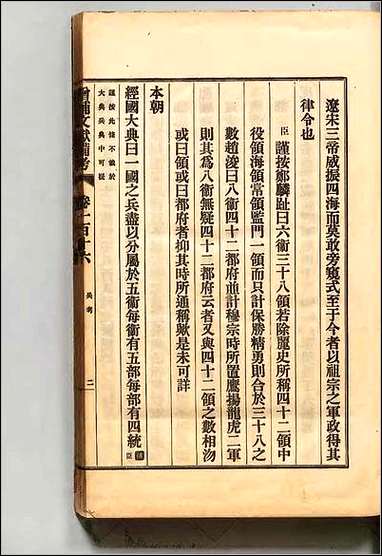 遼宋三帝威振四海而莫敢旁窺式至于今者以祖宗之軍政得其
律令也
臣謹按鄭麟趾曰六衛三十八領若除麗史所稱四十二領中
役領海領常領監門一領而只計保勝精勇則合於三十八之
數趙浚曰八衛四十二都府並計穆宗時所置鷹揚龍虎二軍
則其爲八衛無疑四十二都府云者又與四十二領之數相沕
或曰領或曰都府者抑其時所通稱歟是未可詳
本朝
經國大典曰一國之兵盡以分屬於五衛每衛有五部每部有四統
謹按此條不載於
大典兵典中可疑
增補文獻備考 卷一百十六 兵考 二